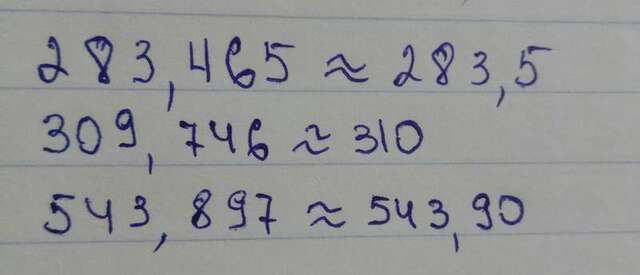 283,465 ≈ 283,5
309,746 ≈ 310
543,897 ≈ 543,90